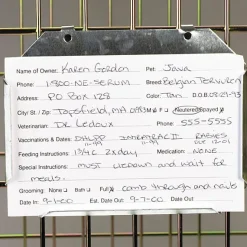 Name of Owner: Karen Gordon Pet: Java
Phone: 1-800-NE-SERUM Breed: Belgian Tervuren
Address: PO Box 128 Color: Tan D.O.B. 08-29-93
City / St. / Zip: Topsfield, MA 01983 M F Neutered Spayed
Veterinarian: Dr. Ledoux Phone: 555-5555
Vaccinations & Dates: DHLPP INTRATRAC II RABIES
11-99 11-99 12-01
Feeding Instructions: 1 3/4 C 2xday Medication: NONE
Special Instructions: must liedown and wait for
meals.
Grooming: None Bath Full comb through and nails
Date In: 9-1-00 Est. Date Out: 9-7-00 Date Out